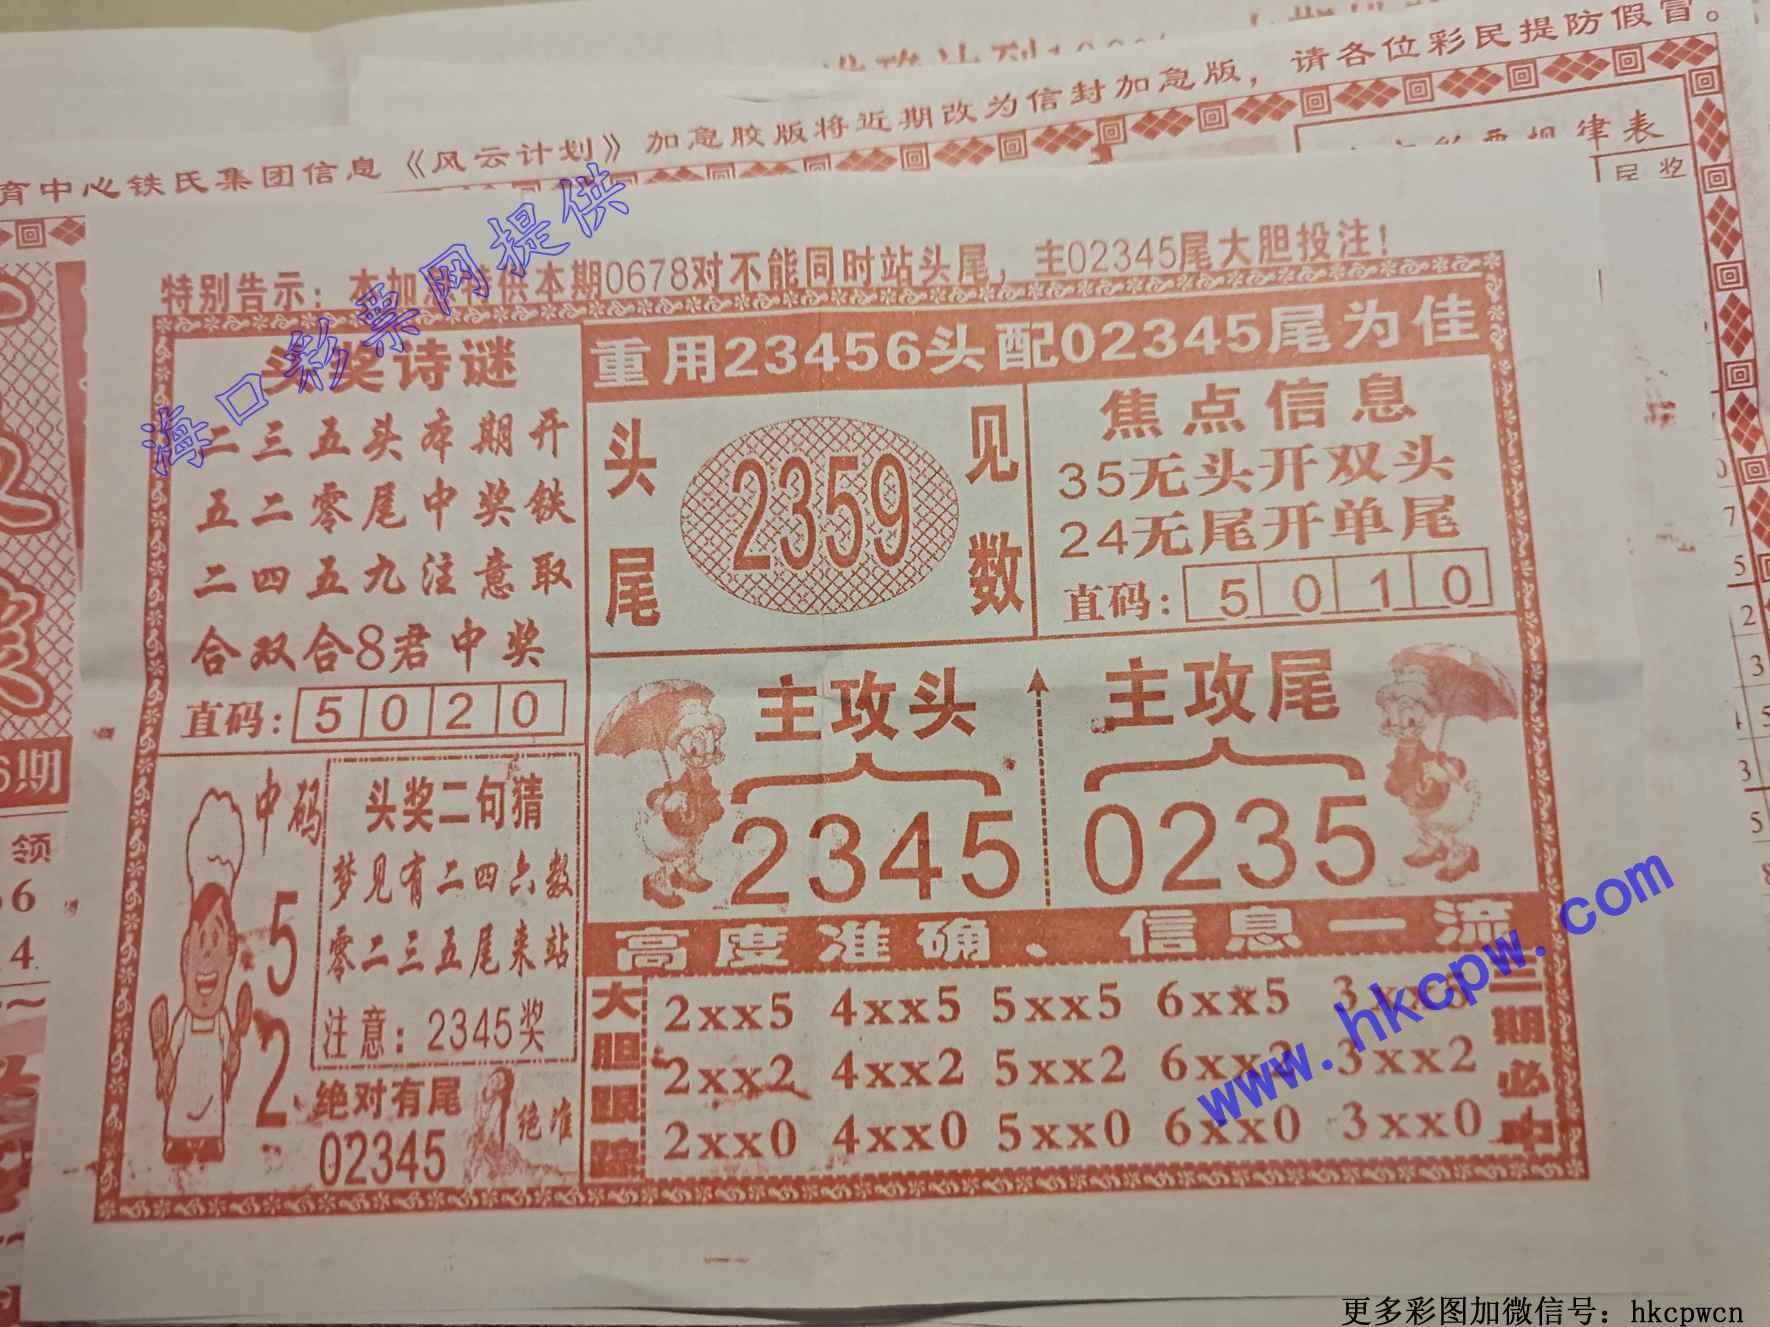 育中心铁氏集团信息《风云计划》加急胶版将近期改为信封加急版，请各位彩民提防假冒。
律表
奖
特别告示：本加急特供本期0678对不能同时站头尾，主02345尾大胆投注！
海口彩票网提供
头奖诗谜
二三五头本期开
五二零尾中奖铁
二四五九注意取
合双合8君中奖
直码：5020
重用23456头配02345尾为佳
头尾
2359
见数
焦点信息
35无头开双头
24无尾开单尾
直码：5010
主攻头
2345
主攻尾
0235
中码
5
2
头奖二句猜
梦见有二四六数
零二三五尾来站
注意：2345奖
绝对有尾
02345
绝准
高度准确、信息一流
大胆跟踪
2xx5 4xx5 5xx5 6xx5 3xx5
2xx2 4xx2 5xx2 6xx2 3xx2
2xx0 4xx0 5xx0 6xx0 3xx0
三期必中
www.hkcpw.com
6期
领
66
4
更多彩图加微信号：hkcpwcn